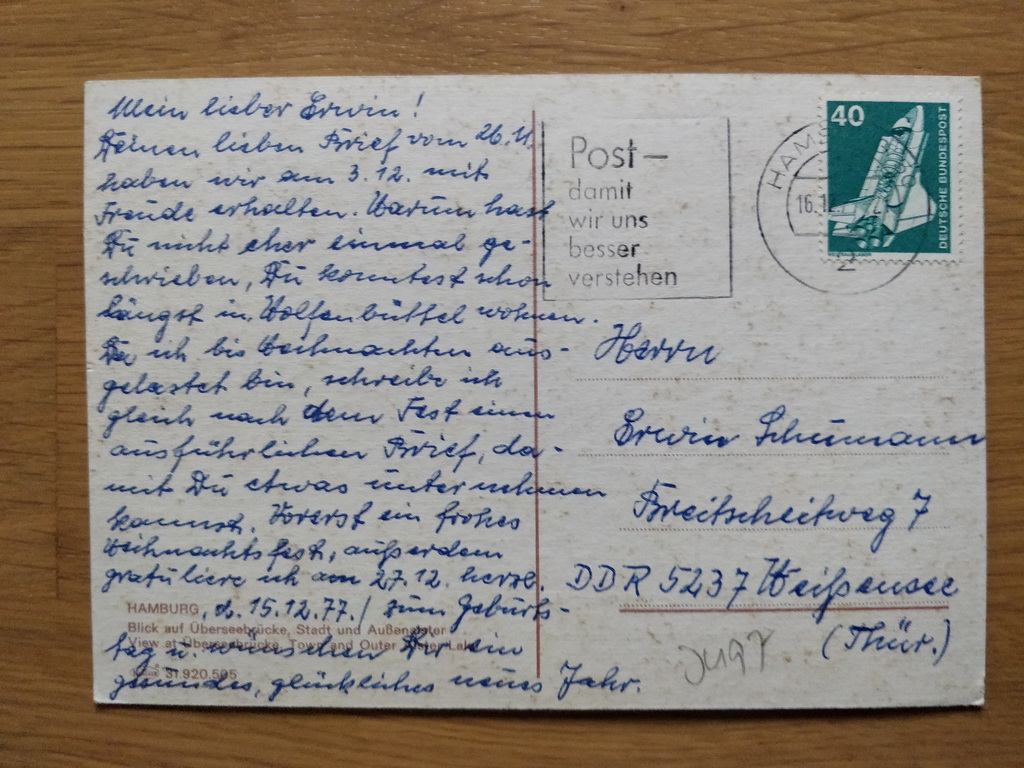 Mein lieber Erwin!
Deinen lieben Brief vom 26.11.
haben wir am 3.12. mit
Freude erhalten. Warum hast
Du nicht eher einmal ge-
schrieben, Du konntest schon
längst in Wolfenbüttel wohnen.
Da ich bis Weihnachten aus-
gelastet bin, schreibe ich
gleich nach dem Fest einen
ausführlichen Brief, da-
mit Du etwas unternehmen
kannst. Vorerst ein frohes
Weihnachtsfest, außerdem
gratuliere ich am 27.12. herzl.
HAMBURG, d. 15.12.77. / zum Geburts-
Blick auf Überseebrücke, Stadt und Außenalster
View at Überseebrücke, Town and Outer Alster Lake
tag u. wünschen Dir ein
31.920.595
gesundes, glückliches neues Jahr.
Post –
damit
wir uns
besser
verstehen
16.12
2
40
DEUTSCHE BUNDESPOST
Herrn
Erwin Schumann
Breitscheitweg 7
DDR 5237 Weißensee
(Thür.)